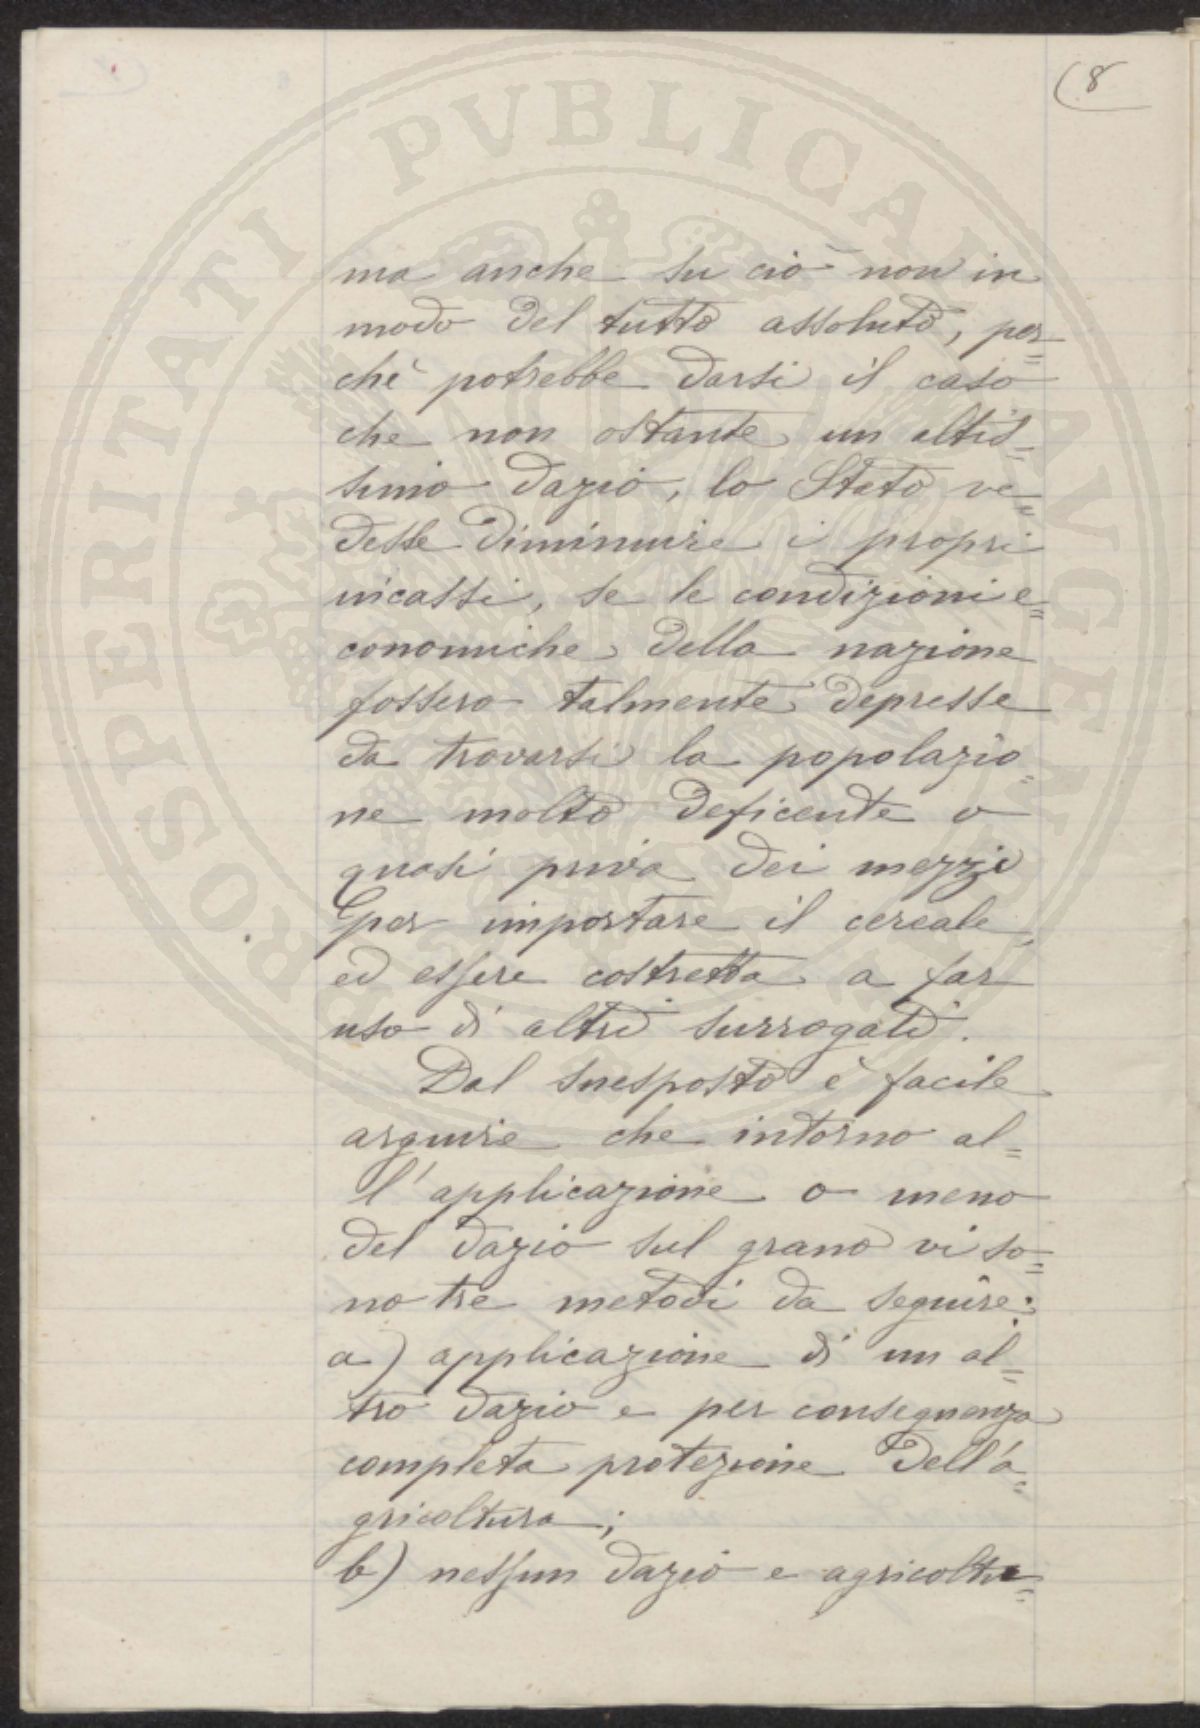 8
PROSPERITATI PVBLICAE AVGENDAE
ma anche su ciò non in
modo del tutto assoluto, per=
chè potrebbe darsi il caso
che non ostante un altis=
simo dazio, lo Stato ve=
desse diminuire i propri
incassi, se le condizioni e=
conomiche della nazione
fossero talmente depresse
da trovarsi la popolazio=
ne molto deficente o
quasi priva dei mezzi
per importare il cereale,
ed essere costretta a far
uso di altri surrogati.
Dal suesposto è facile
arguire che intorno al=
l'applicazione o meno
del dazio sul grano vi so=
no tre metodi da seguire:
a) applicazione di un al=
tro dazio e per conseguenza
completa protezione dell'a=
gricoltura;
b) nessun dazio e agricoltu=